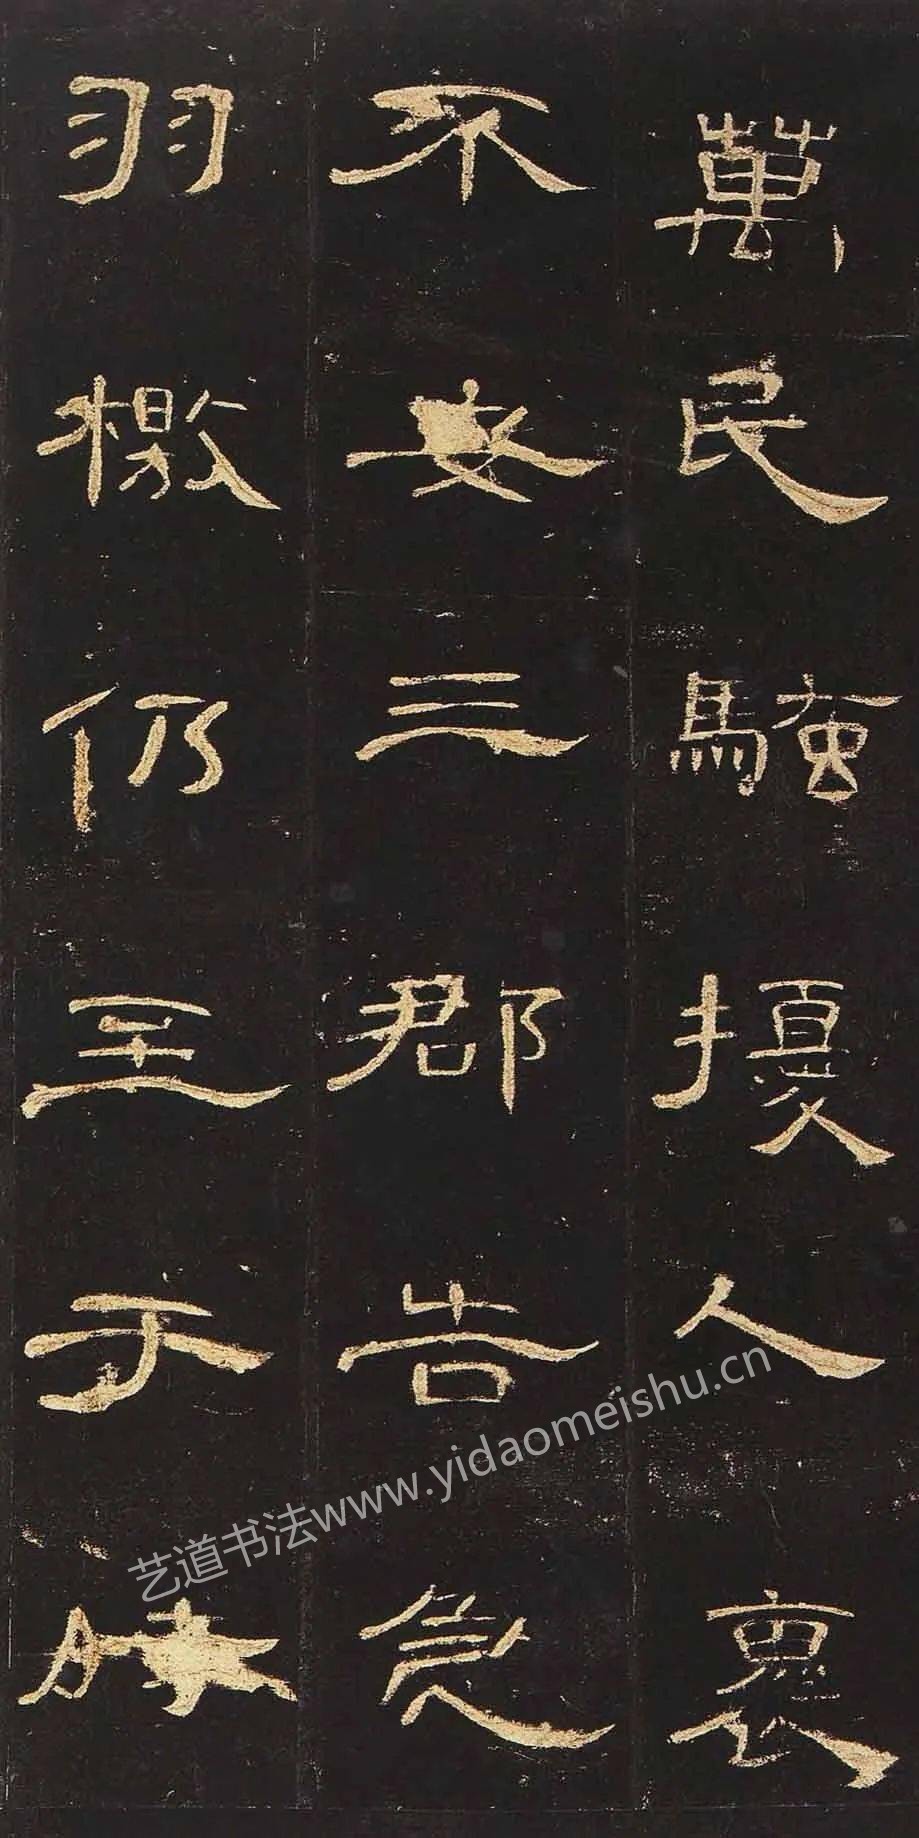 萬民騷擾人裹
不安三郡告急
羽檄仍至于時
艺道书法www.yidaomeishu.cn